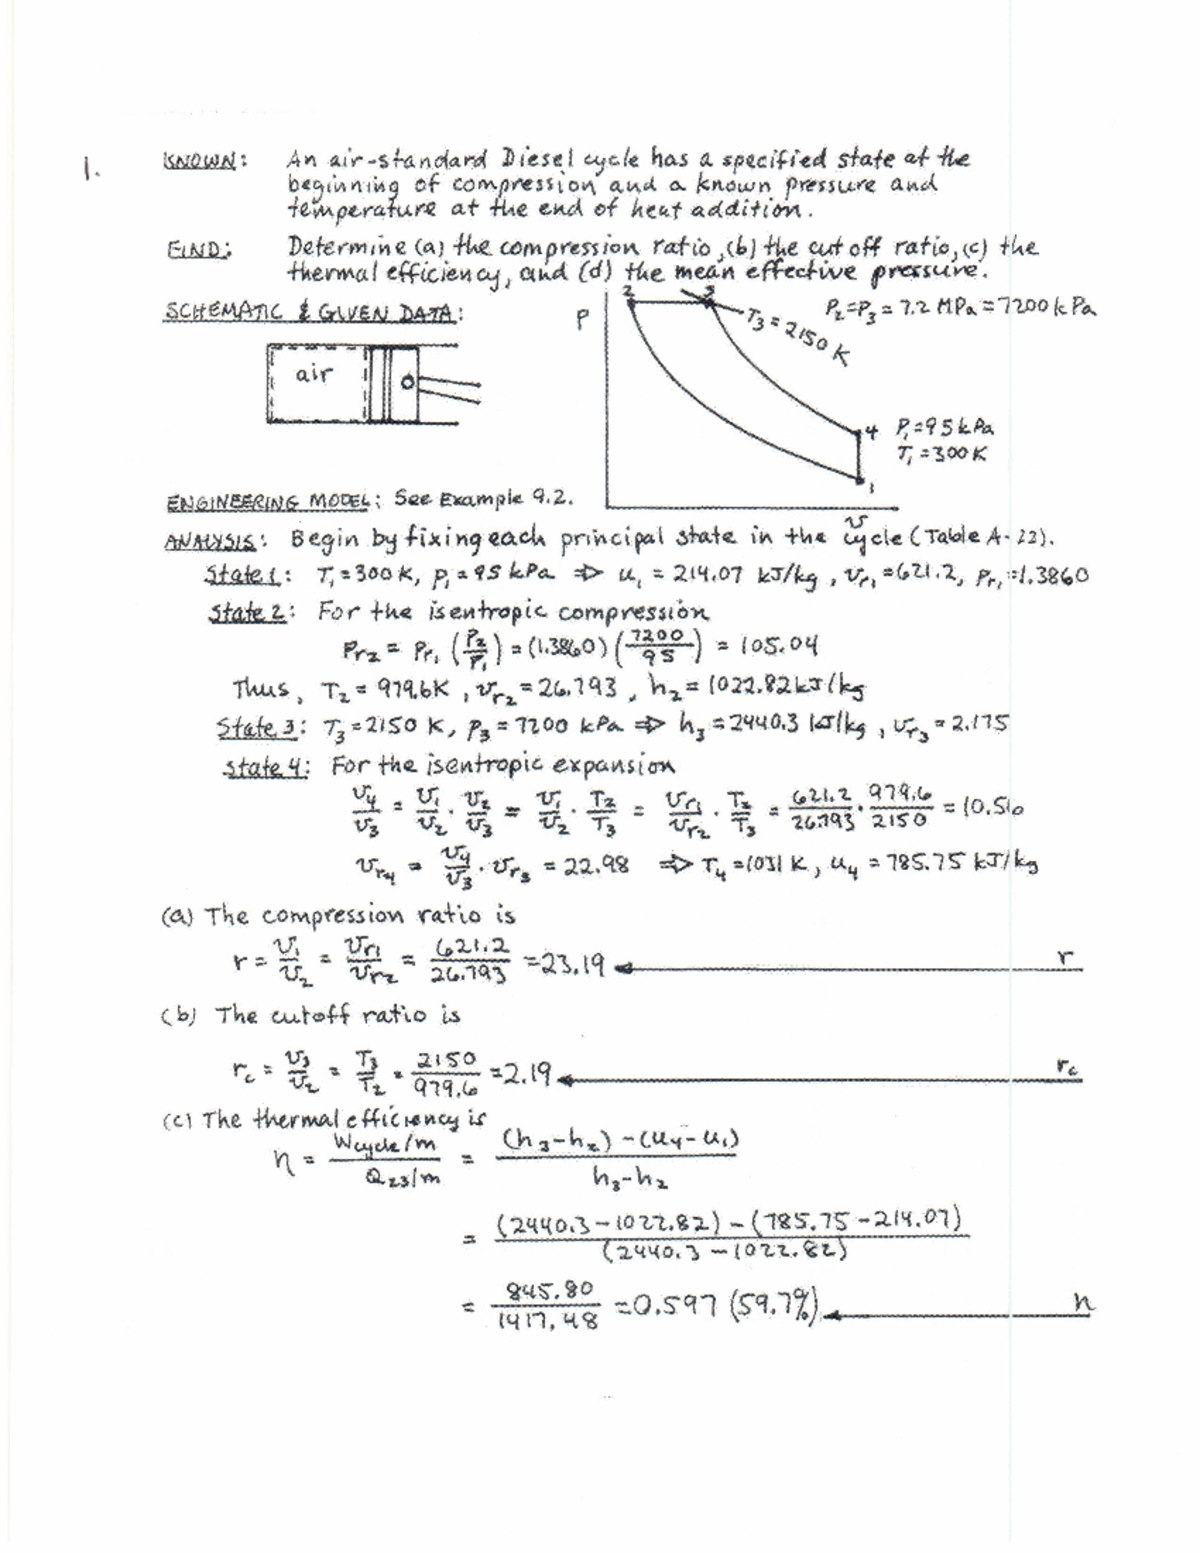 1. KNOWN: An air-standard Diesel cycle has a specified state at the
beginning of compression and a known pressure and
temperature at the end of heat addition.
FIND: Determine (a) the compression ratio, (b) the cut off ratio, (c) the
thermal efficiency, and (d) the mean effective pressure.
SCHEMATIC & GIVEN DATA:
air
P
2
3
T3 = 2150 K
P2=P3 = 7.2 MPa = 7200 kPa
4
P1=95 kPa
T1=300 K
1
v
ENGINEERING MODEL: See Example 9.2.
ANALYSIS: Begin by fixing each principal state in the cycle (Table A-22).
State 1: T1=300 K, p1=95 kPa ⇒ u1 = 214.07 kJ/kg, vr1=621.2, pr1=1.3860
State 2: For the isentropic compression
Pr2 = Pr1 (P2/P1) = (1.3860)(7200/95) = 105.04
Thus, T2 = 979.6K, vr2=26.793, h2=1022.82 kJ/kg
State 3: T3=2150 K, p3=7200 kPa ⇒ h3=2440.3 kJ/kg, vr3=2.175
State 4: For the isentropic expansion
v4/v3 = v1/v2 · v2/v3 = v1/v2 · T2/T3 = vr1/vr2 · T2/T3 = 621.2/26.793 · 979.6/2150 = 10.56
vr4 = v4/v3 · vr3 = 22.98 ⇒ T4=1031 K, u4 = 785.75 kJ/kg
(a) The compression ratio is
r = v1/v2 = vr1/vr2 = 621.2/26.793 = 23.19 r
(b) The cutoff ratio is
rc = v3/v2 = T3/T2 = 2150/979.6 = 2.19 rc
(c) The thermal efficiency is
η = Wcycle/m / Q23/m = (h3-h2) - (u4-u1) / h3-h2
= (2440.3-1022.82) - (785.75-214.07) / (2440.3-1022.82)
= 845.80/1417.48 = 0.597 (59.7%) η